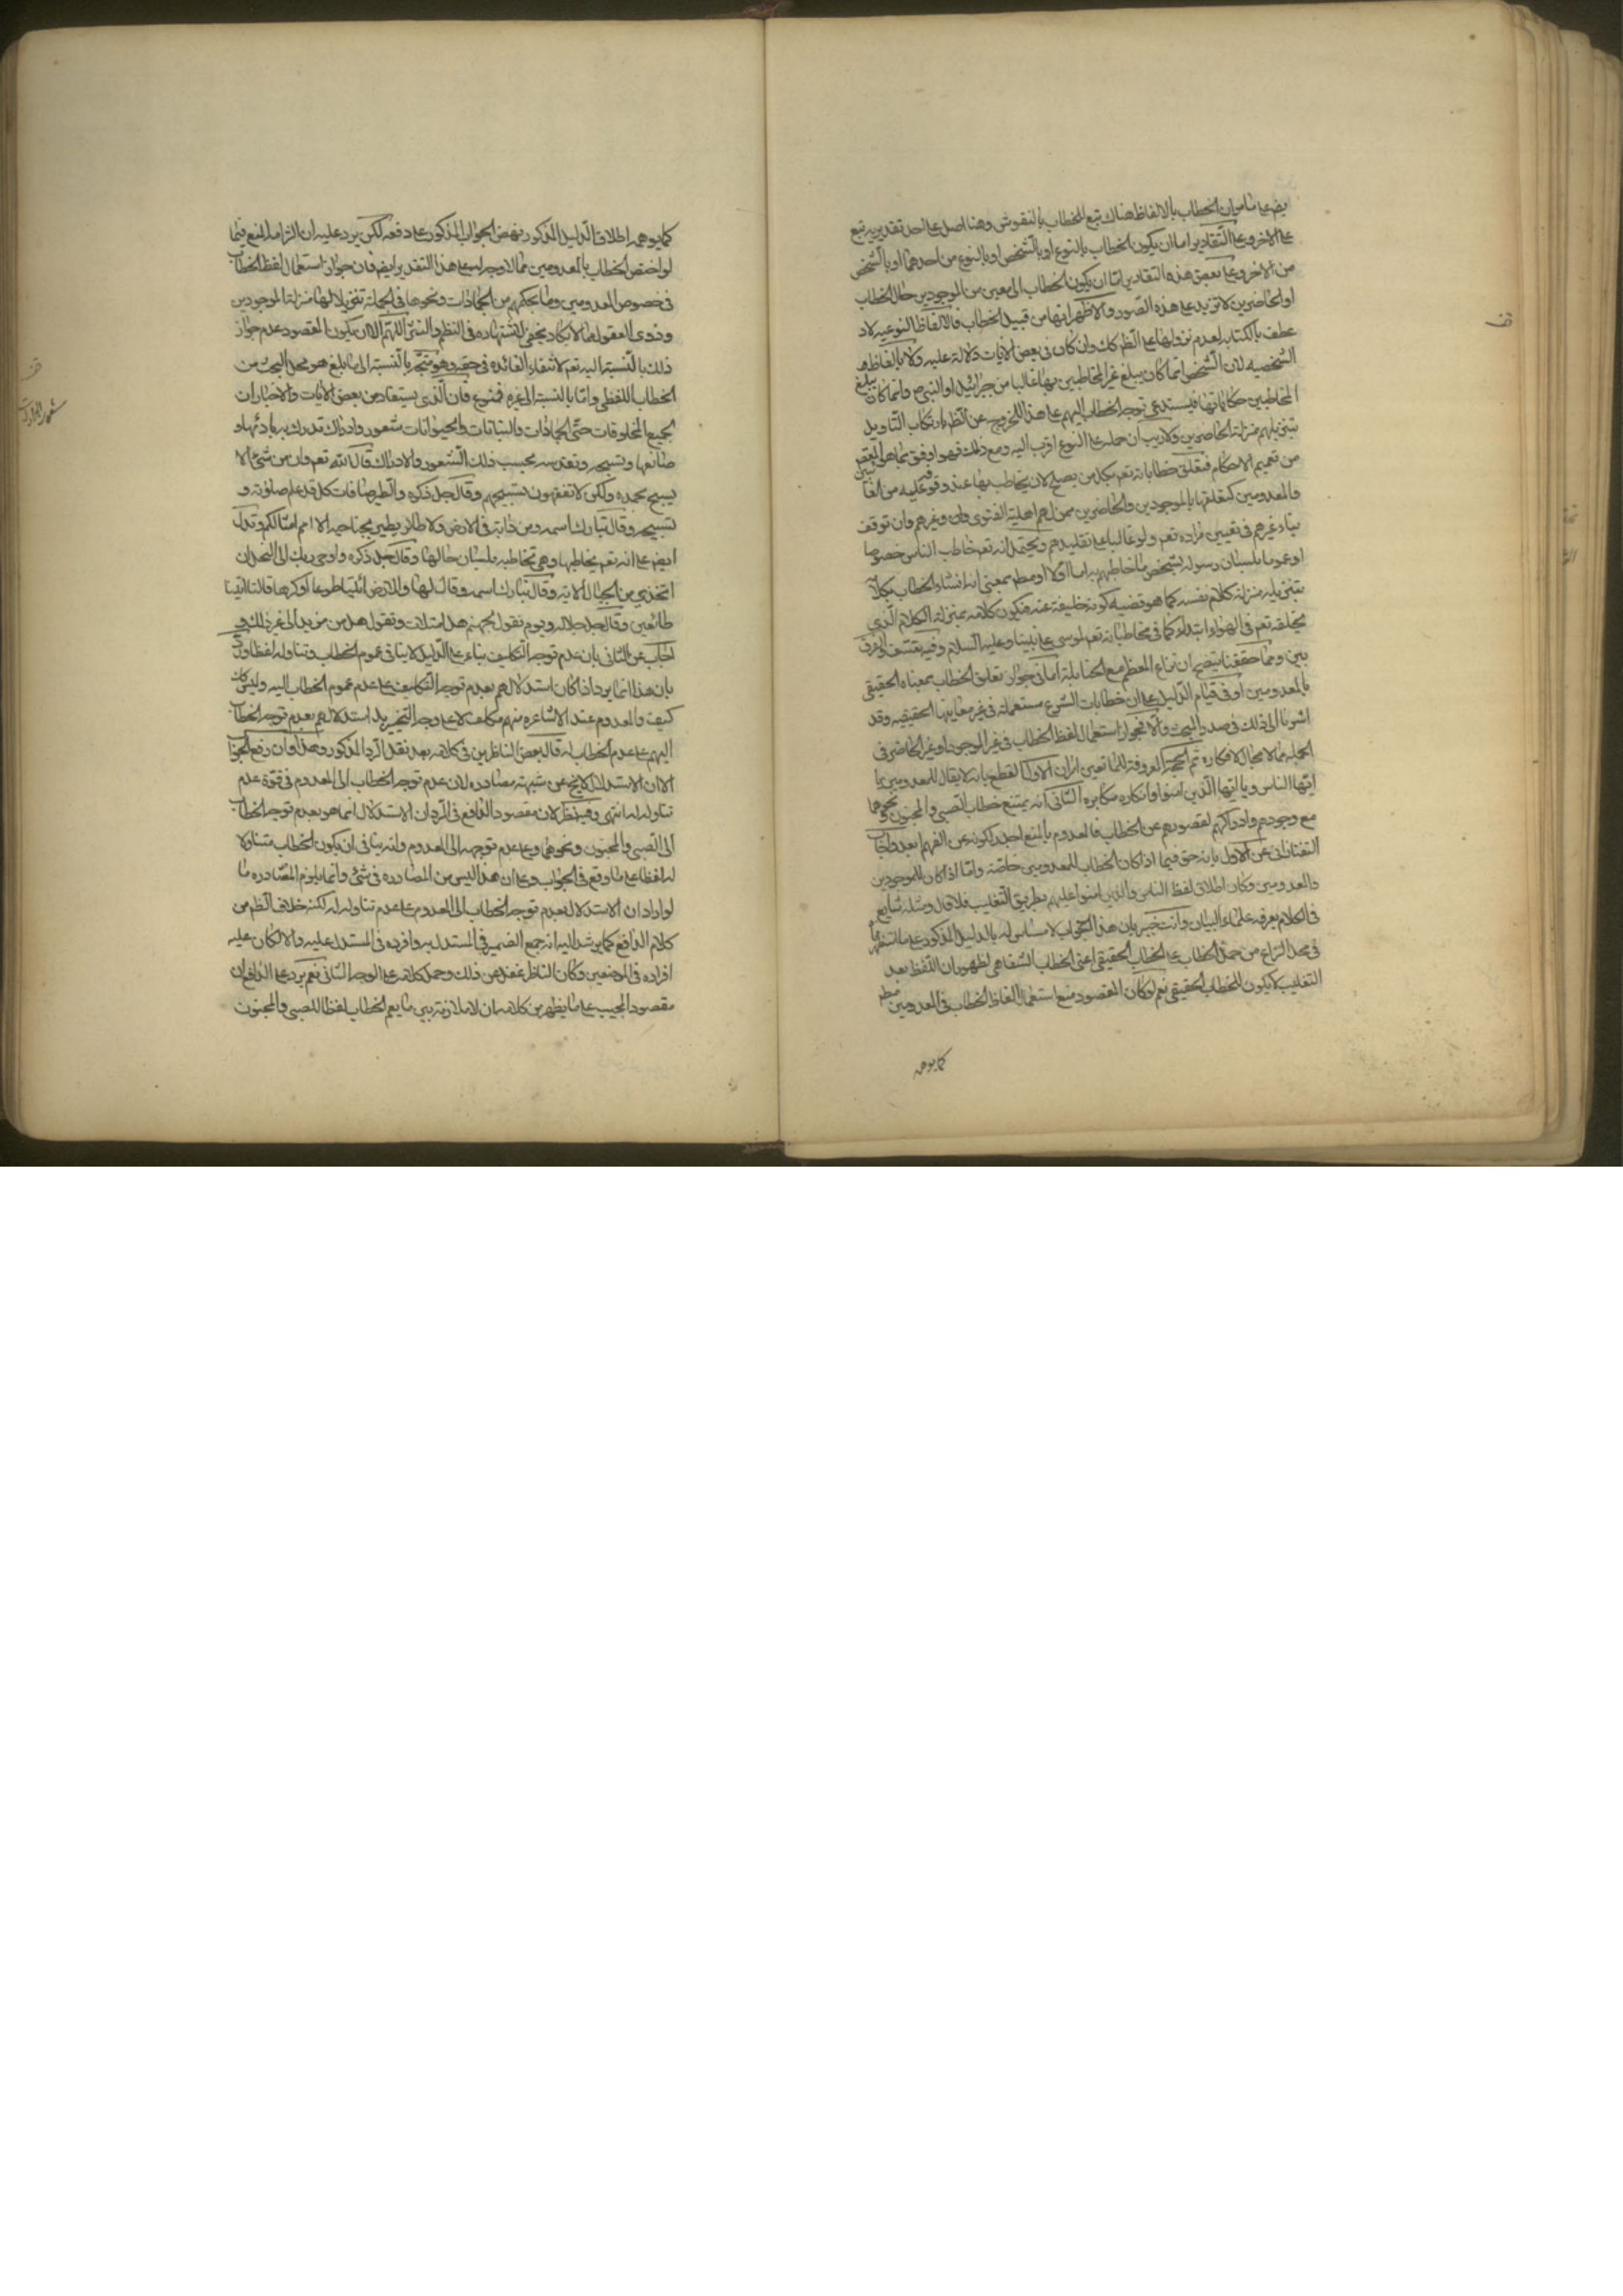 على الاخر وعلى التقادير اما ان يكون الخطاب بالنوع او بالشخص او بالنوع من احدهما او بالشخص
من الاخر وعلى بعض هذه التقادير اما ان يكون الخطاب الى معين من الموجودين حال الخطاب
او الحاضرين لا تزيد على هذه الصور والاظهر انها من قبيل الخطاب فالالفاظ النوعيه
الشخصيه لان الشخص انما كان يبلغ غير المخاطبين بها غالبا من جبرائيل او النبي ص وانما كان يبلغ
المخاطبين حكاياتها فيستدعي توجه الخطاب اليهم على هذا للخروج عن الظم بارتكاب التاويل
بتنزيلهم منزلة الحاضرين ولا ريب ان حمله على النوع اقرب اليه ومع ذلك فهو اوفق بما هو المقص
من تعميم الاحكام فيتعلق خطاباته تعم بكل من يصلح لان يخاطب بها عند وقوعه عليه من الغائبين
والمعدومين كتعلقها بالموجودين والحاضرين ممن لهم اهلية الفتوى وان وغيرهم وان توقف
بناء غيرهم في تعيين مراده تعم ولو غالبا على تقليدهم ويحتمل انه تعم خاطب الناس خصوصا
او عموما بلسان رسوله بشخص ما خاطبهم به اما اولا او مطم بمعنى انه انشاء الخطاب بكلامه
بتنزيله منزلة كلام نفسه كما هو قضيه كونه خليفة عنه فيكون كلامه بمنزلة الكلام الذي
يخلقه تعم في الهواء ابتداء كما في مخاطباته تعم لموسى على نبينا وعليه السلام وفيه تعسف والفرق
بين ومما حققنا يتضح ان نزاع المعظم مع الحنابلة اما في جواز تعلق الخطاب بمعناه الحقيقي
بالمعدومين او في قيام الدليل على ان خطابات الشرع مستعملة في غير معانيها الحقيقيه وقد
اشرنا الى ذلك في صدر المبحث والا فجواز استعمال لفظ الخطاب في غير الموجود او غير الحاضر في
الجملة مما لا مجال لانكاره ثم الحجة المعروفة للمانعين امران الاول القطع بانه لا يقال للمعدومين يا
ايها الناس ويا ايها الذين امنوا وانكاره مكابره الثاني انه يمتنع خطاب الصبي والمجنون ونحوهما
مع وجودهم وادراكهم لقصورهم عن الخطاب فالمعدوم بالمنع اجدر لكونه عن الفهم ابعد واجاب
التفتازاني عن الاول بانه حق فيما اذا كان الخطاب للمعدومين خاصة واما اذا كان للموجودين
والمعدومين وكان اطلاق لفظ الناس والذين امنوا عليهم بطريق التغليب فلا قال ومثله شايع
في الكلام يعرفه علماء البيان وانت خبير بان هذا الجواب لا مساس له بالدليل المذكور على ما
في محل النزاع من حمل الخطاب على الخطاب الحقيقي اعني الخطاب الشفاهي لظهور ان اللفظ بعد
التغليب لا يكون للخطاب الحقيقي نعم لو كان المقصود منع استعمال الفاظ الخطاب في المعدومين مطم
كما يوهمه
كما يوهمه اطلاق الدليل المذكور نهض الجواب المذكور على دفعه لكن يرد عليه ان التزامه المنع فيما
لو اختص الخطاب بالمعدومين مما لا وجه له على هذا التقدير ايضم فان جواز استعمال لفظ الخطاب
في خصوص المعدومين وما بحكمهم من الجمادات ونحوها في الجملة تنزيلا لها منزلة الموجودين
وذوى العقول مما لا يكاد يخفى لاشتهاره في النظم والنثر اللهم الا ان يكون المقصود عدم جواز
ذلك بالنسبة اليه تعم لانتفاء الفائده في حقه وهو متجه بالنسبة الى ما بلغ هو محل البحث من
الخطاب اللفظي واما بالنسبة الى غيره فممنوع فان الذي يستفاد من بعض الايات والاخبار ان
لجميع المخلوقات حتى الجمادات والنباتات والحيوانات شعور وادراك تدرك به بارئها و
صانعها وتسبحه وتقدسه بحسب ذلك الشعور والادراك قال الله تعم وان من شئ الا
يسبح بحمده ولكن لا تفقهون تسبيحهم وقال جل ذكره والطير صافات كل قد علم صلوته و
تسبيحه وقال تبارك اسمه ومن دابة في الارض ولا طائر يطير بجناحيه الا امم امثالكم وتدل
ايضم على انه تعم يخاطبها وهي تخاطبه بلسان حالها وقال جل ذكره واوحى ربك الى النحل ان
اتخذي من الجبال الاية وقال تبارك اسمه وقال لها وللارض ائتيا طوعا او كرها قالتا اتينا
طائعين وقال جل جلاله ويوم نقول لجهنم هل امتلات وتقول هل من مزيد الى غير ذلك و
اجاب عن الثاني بان عدم توجه التكليف بناء على الدليل لا ينافي عموم الخطاب وتناوله لفظا ورد
بان هذا انما يرد اذا كان استدلالهم بعدم توجه التكليف على عدم عموم الخطاب اليه وليس كك
كيف والمعدوم عند الاشاعره منهم مكلف لا على وجه التنجيز بل استدلالهم بعدم توجه الخطاب
اليهم على عدم الخطاب له قال بعض الناظرين في كلامه بعد نقل الرد المذكور وهذا وان رفع الجواب
الا ان الاستدلال لا يخ عن شبهة مصادره لان عدم توجه الخطاب الى المعدوم في قوة عدم
تناوله له انتهى وفيه نظر لان مقصود الدافع في الرد ان الاستدلال انما هو بعدم توجه الخطاب
الى الصبي والمجنون ونحوهما وعلى عدم توجهه الى المعدوم وانه ينافي ان يكون الخطاب متناولا
له لفظا على ما وقع في الجواب وعلى ان هذا ليس من المصادره في شئ وانما يلزم المصادره ما
لو اراد ان الاستدلال بعدم توجه الخطاب الى المعدوم على عدم تناوله له لكنه خلاف الظم من
كلام الدافع كما يرشد اليه انه جمع الضمير في المستدل به وافرده في المستدل عليه والا لكان عليه
افراده في الموضعين وكان الناظر غفل عن ذلك وحمل كلامه على الوجه الثاني نعم يرد على الدافع ان
مقصود المجيب على ما يظهر من كلامه ان لا ملازمة بين ما يعم الخطاب لفظا للصبي والمجنون